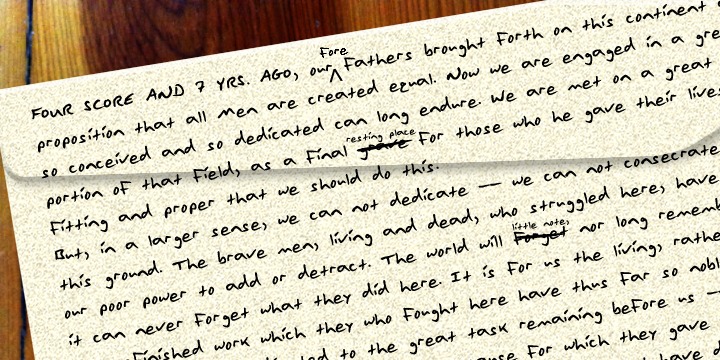 FOUR SCORE AND 7 YRS. AGO, our Fore Fathers brought Forth on this continent
proposition that all Men are created eqal. Now we are engaged in a gre
so conceived and so dedicated can long endure. We are met on a great
portion of that Field, as a Final grave resting place For those who he gave their lives
Fitting and proper that we should do this.
But, in a larger sense, we can not dedicate — we can not consecrate
this ground. The brave men, living and dead, who struggled here, have
our poor power to add or detract. The world will Forget little note, nor long rememb
it can never Forget what they did here. It is For us the living, rathe
Finished work which they who Fought here have thus Far so nobl
to the great task remaining beFore us —
For which they gave
have